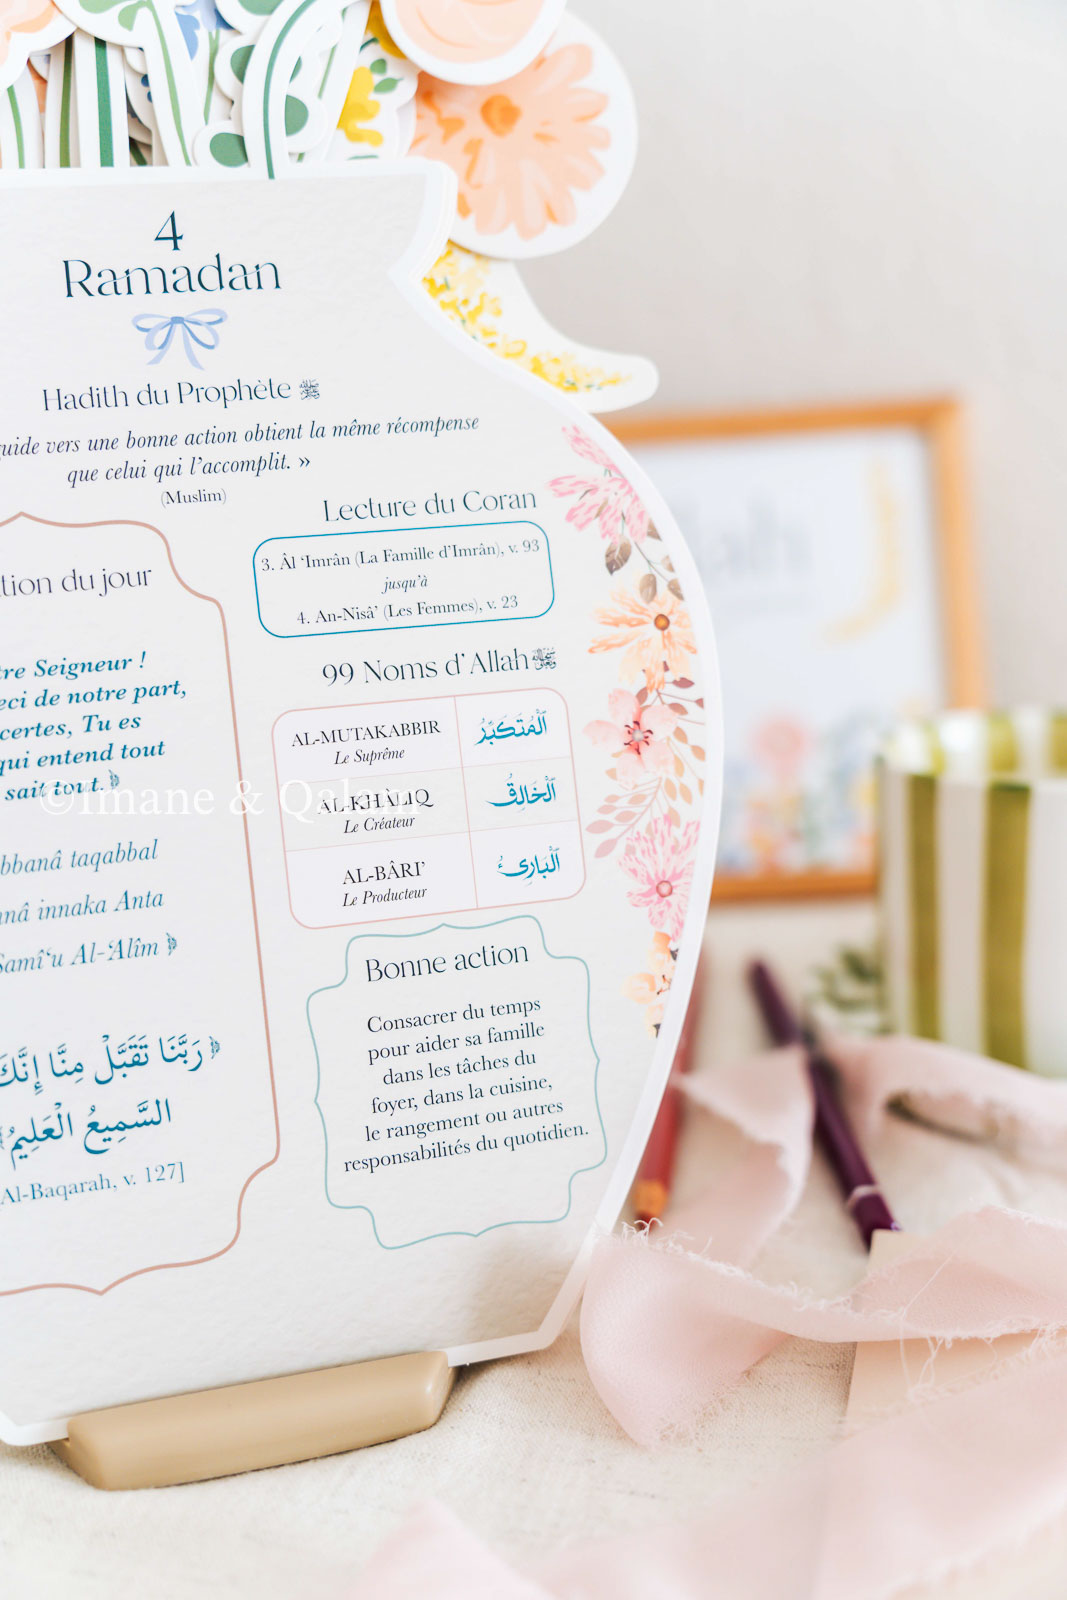 4
Ramadan
Hadith du Prophète ﷺ
guide vers une bonne action obtient la même récompense
que celui qui l'accomplit. »
(Muslim)
tion du jour
tre Seigneur !
eci de notre part,
certes, Tu es
qui entend tout
sait tout. ﴿
bbanâ taqabbal
nnâ innaka Anta
Samî‘u Al-‘Alîm ﴿
﴿ رَبَّنَا تَقَبَّلْ مِنَّا إِنَّكَ
السَّمِيعُ الْعَلِيمُ
Al-Baqarah, v. 127]
Lecture du Coran
3. Âl ‘Imrân (La Famille d’Imrân), v. 93
jusqu’à
4. An-Nisâ’ (Les Femmes), v. 23
99 Noms d’Allah ﷻ
AL-MUTAKABBIR
Le Suprême
ٱلْمُتَكَبِّرُ
AL-KHÂLIQ
Le Créateur
ٱلْخَالِقُ
AL-BÂRI’
Le Producteur
ٱلْبَارِئُ
Bonne action
Consacrer du temps
pour aider sa famille
dans les tâches du
foyer, dans la cuisine,
le rangement ou autres
responsabilités du quotidien.
©Imane & Qalam